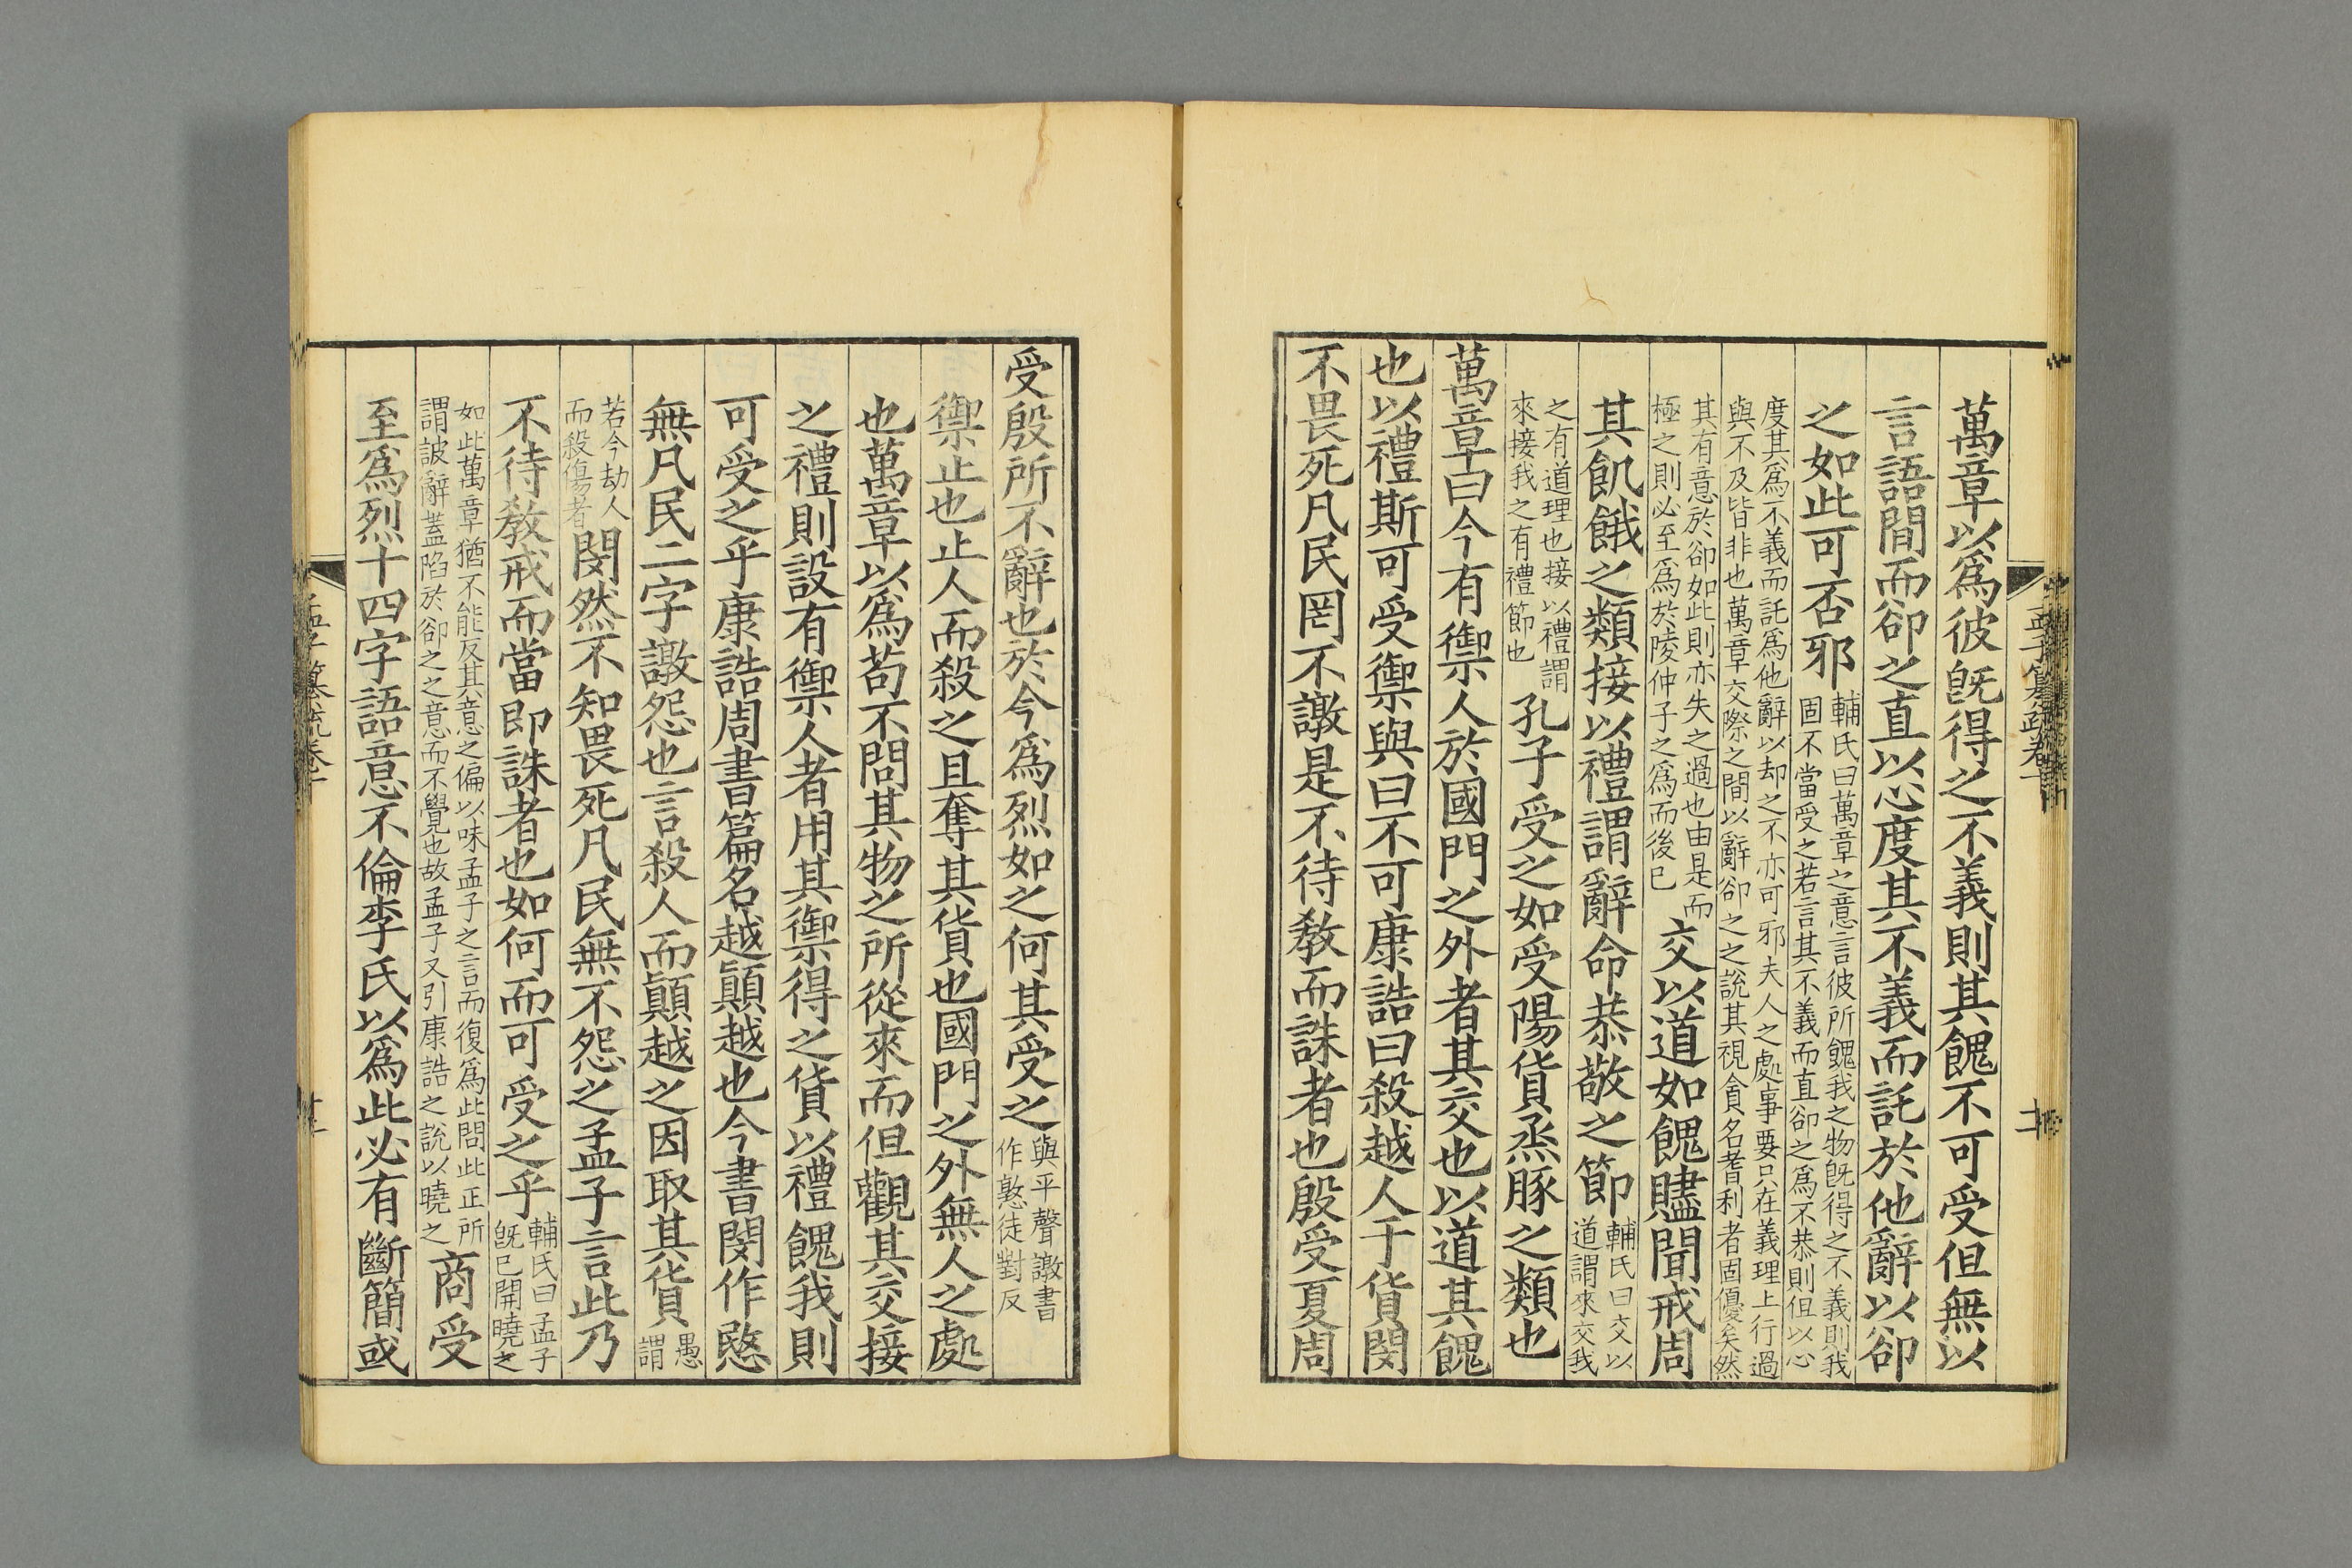 萬章以爲彼旣得之不義則其餽不可受但無以
言語間而卻之直以心度其不義而託於他辭以卻
之如此可否邪輔氏曰萬章之意言彼所餽我之物旣得之不義則我固不當受之若言其不義而直卻之爲不恭則但以心
度其爲不義而託爲他辭以却之不亦可邪夫人之處事要只在義理上行過與不及皆非也萬章交際之間以辭卻之之說其視貪名耆利者固優矣然
其有意於卻如此則亦失之過也由是而極之則必至爲於陵仲子之爲而後已交以道如餽贐聞戒周
其飢餓之類接以禮謂辭命恭敬之節輔氏曰交以道謂來交我
之有道理也接以禮謂來接我之有禮節也孔子受之如受陽貨烝豚之類也
萬章曰今有禦人於國門之外者其交也以道其餽
也以禮斯可受禦與曰不可康誥曰殺越人于貨閔
不畏死凡民罔不譈是不待敎而誅者也殷受夏周
孟子纂疏卷十
受殷所不辭也於今爲烈如之何其受之與平聲譈書作憝徒對反
禦止也止人而殺之且奪其貨也國門之外無人之處
也萬章以爲苟不問其物之所從來而但觀其交接
之禮則設有禦人者用其禦得之貨以禮餽我則
可受之乎康誥周書篇名越顚越也今書閔作愍
無凡民二字譈怨也言殺人而顚越之因取其貨愚謂
若今劫人而殺傷者閔然不知畏死凡民無不怨之孟子言此乃
不待敎戒而當卽誅者也如何而可受之乎輔氏曰孟子旣已開曉之
如此萬章猶不能反其意之偏以味孟子之言而復爲此問此正所謂詖辭蓋陷於卻之之意而不覺也故孟子又引康誥之說以曉之商受
至爲烈十四字語意不倫李氏以爲此必有斷簡或
孟子纂疏卷十